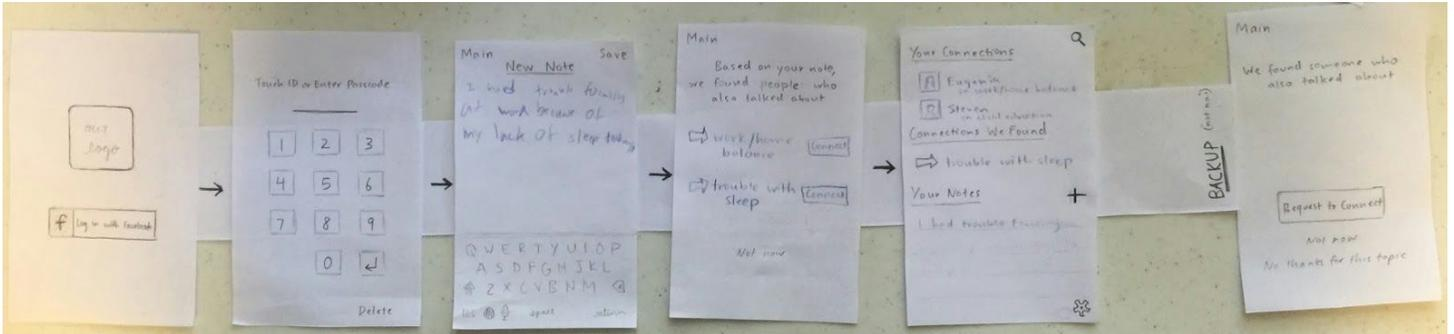 our
logo
f Log in with Facebook
Touch ID or Enter Passcode
1 2 3
4 5 6
7 8 9
0
Delete
Main Save
New Note
I had trouble focusing
at work because of
my lack of sleep today
Q W E R T Y U I O P
A S D F G H J K L
Z X C V B N M
space return
Main
Based on your note,
we found people who
also talked about
work/home
balance
Connect
trouble with
sleep
Connect
Not now
Your Connections
Eugenia
on work/home balance
Steven
on child education
Connections We Found
trouble with sleep
Your Notes +
I had trouble focusing...
BACKUP (not on)
Main
We found someone who
also talked about
Request to Connect
Not now
No thanks for this topic